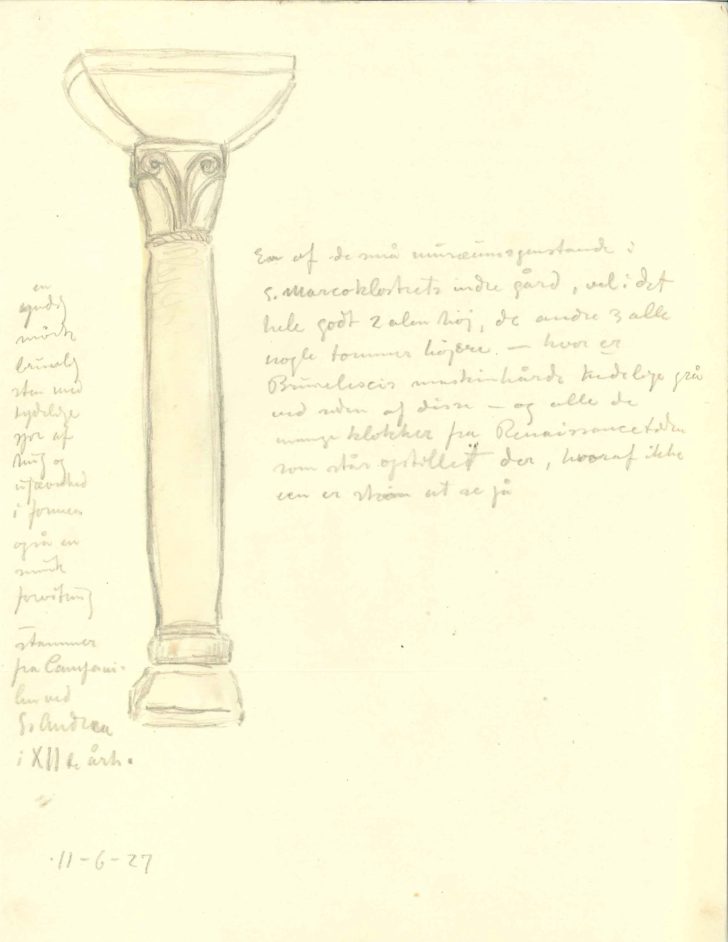 En af de små museumsgenstande i
S. Marcoklostrets indre gård, vel i det
hele godt 2 alen høj, de andre 3 alle
nogle tommer højere. — hvor er
maskinhårde kedelige grå
ved siden af disse — og alle de
mange klokker fra Renaissancetiden
som står opstillet der, hvoraf ikke
een er at se på
en
yndig
mørk
brunlig
sten med
tydelige
spor af
hug og
ujævnhed
i formen
også en
smuk
stammer
fra Campani-
len ved
S. Andrea
i XII te årh.
11-6-27